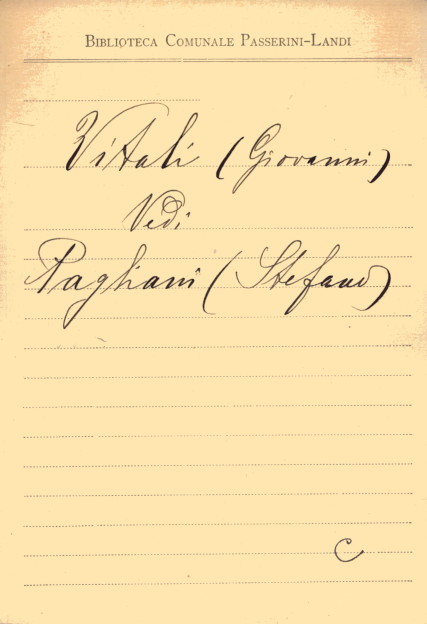 BIBLIOTECA COMUNALE PASSERINI-LANDI
Vitali (Giovanni)
Vedi
Pagliani (Stefano)
C